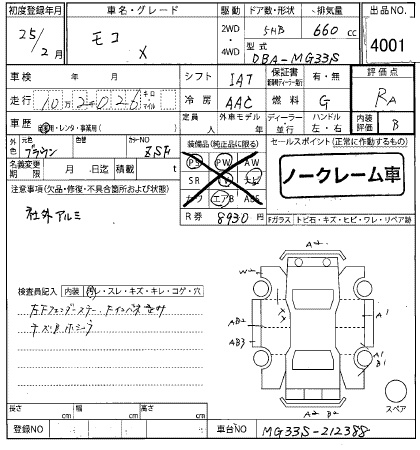 初度登録年月 車名・グレード 駆動 ドア数・形状 排気量 出品NO.
25/2月 モコ X 2WD・4WD 5HB 660cc 4001
型式 DBA-MG33S
車検 年 月 シフト IAT 保証書 有・無 評価点
走行 10万2026 キロ マイル 冷房 AAC 燃料 G RA
車歴 自家用・レンタ・事業用( ) 定員 人 外車モデル 年 ディーラー 並行 ハンドル 左・右 内装評価 B
外色 元色 ブラウン 色替 カラーNO ZSH 装備品(純正品に限る) セールスポイント(正常に作動するもの)
名義変更期限 月 日迄 積載 t PS PW AW
注意事項(欠品・修復・不具合箇所および状態) SR TV ナビ ノークレーム車
社外アルミ カワ エアB ABS
R券 8930円 Fガラス トビ石・キズ・ヒビ・ワレ・リペア跡
A2
W2
検査員記入 内装 汚レ・スレ・キズ・キレ・コゲ・穴
AB2 A1
キズB ホシーブ AB3
A1
B1
A2 B2 スペア
長さ cm 幅 cm 高さ cm
登録NO 車台NO MG33S-212388